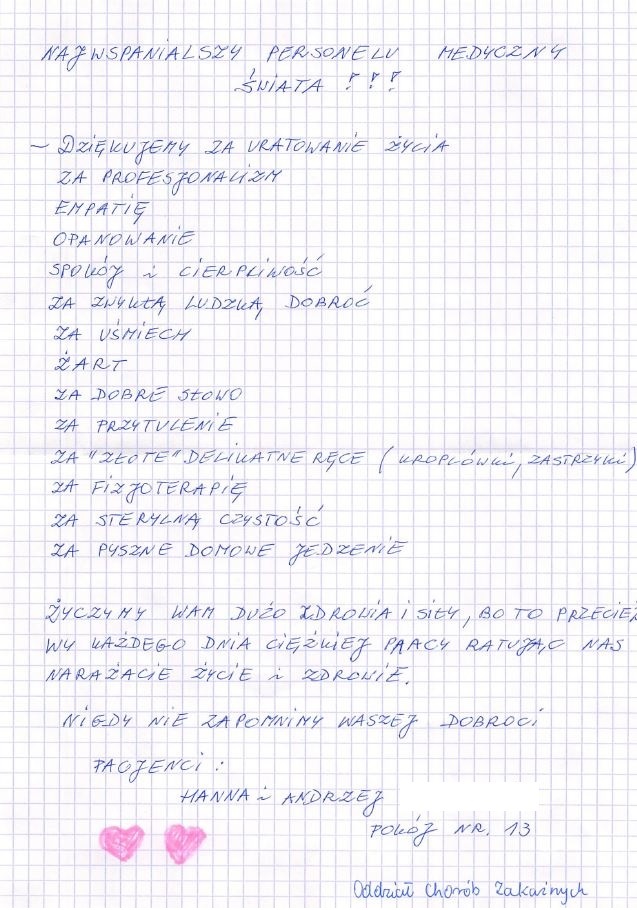 NAJWSPANIALSZY PERSONELU MEDYCZNY
ŚWIATA !!!
~ DZIĘKUJEMY ZA URATOWANIE ŻYCIA
ZA PROFESJONALIZM
EMPATIĘ
OPANOWANIE
SPOKÓJ i CIERPLIWOŚĆ
ZA ZWYKŁĄ LUDZKĄ DOBROĆ
ZA UŚMIECH
ŻART
ZA DOBRE SŁOWO
ZA PRZYTULENIE
ZA "ZŁOTE" DELIKATNE RĘCE (KROPLÓWKI, ZASTRZYKI)
ZA FIZJOTERAPIĘ
ZA STERYLNĄ CZYSTOŚĆ
ZA PYSZNE DOMOWE JEDZENIE
ŻYCZYMY WAM DUŻO ZDROWIA I SIŁY, BO TO PRZECIEŻ
WY KAŻDEGO DNIA CIĘŻKIEJ PRACY RATUJĄC NAS
NARAŻACIE ŻYCIE i ZDROWIE.
NIGDY NIE ZAPOMNIMY WASZEJ DOBROCI
PACJENCI :
HANNA i ANDRZEJ
POKÓJ NR. 13
Oddział Chorób Zakaźnych